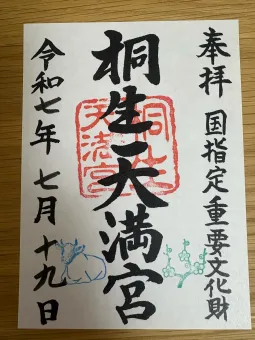 奉拝 国指定重要文化財
桐生天満宮
令和七年 七月 十九日
桐生
天満宮